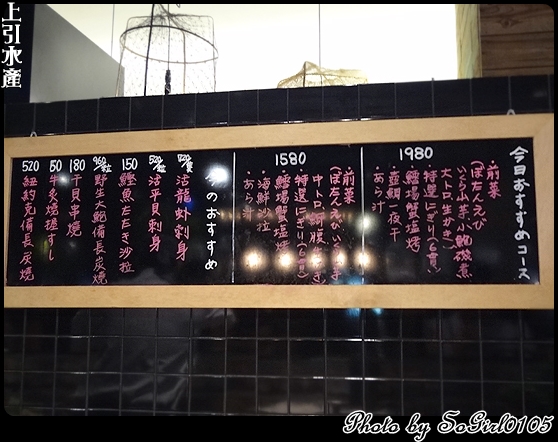 上引水產
今日おすすめコース
1980
・前菜
(ぼたんえび
いくら山芋 小鮑磯煮
大トロ生うに)
・特選にぎり(6貫)
・鱈場蟹塩烤
・喜鯛一夜干
・あら汁
1580
・前菜
・特選にぎり(6貫)
・鱈場蟹塩烤
・海鮮沙拉
・あら汁
今のおすすめ
活龍虾刺身
520/粒
活平貝刺身
150
鰹魚たたき沙拉
960/粒
野生大鮑備長炭燒
180
干貝串燒
50
牛炙燒握
520
紐約克備長炭燒
Photo by SoGirl0105